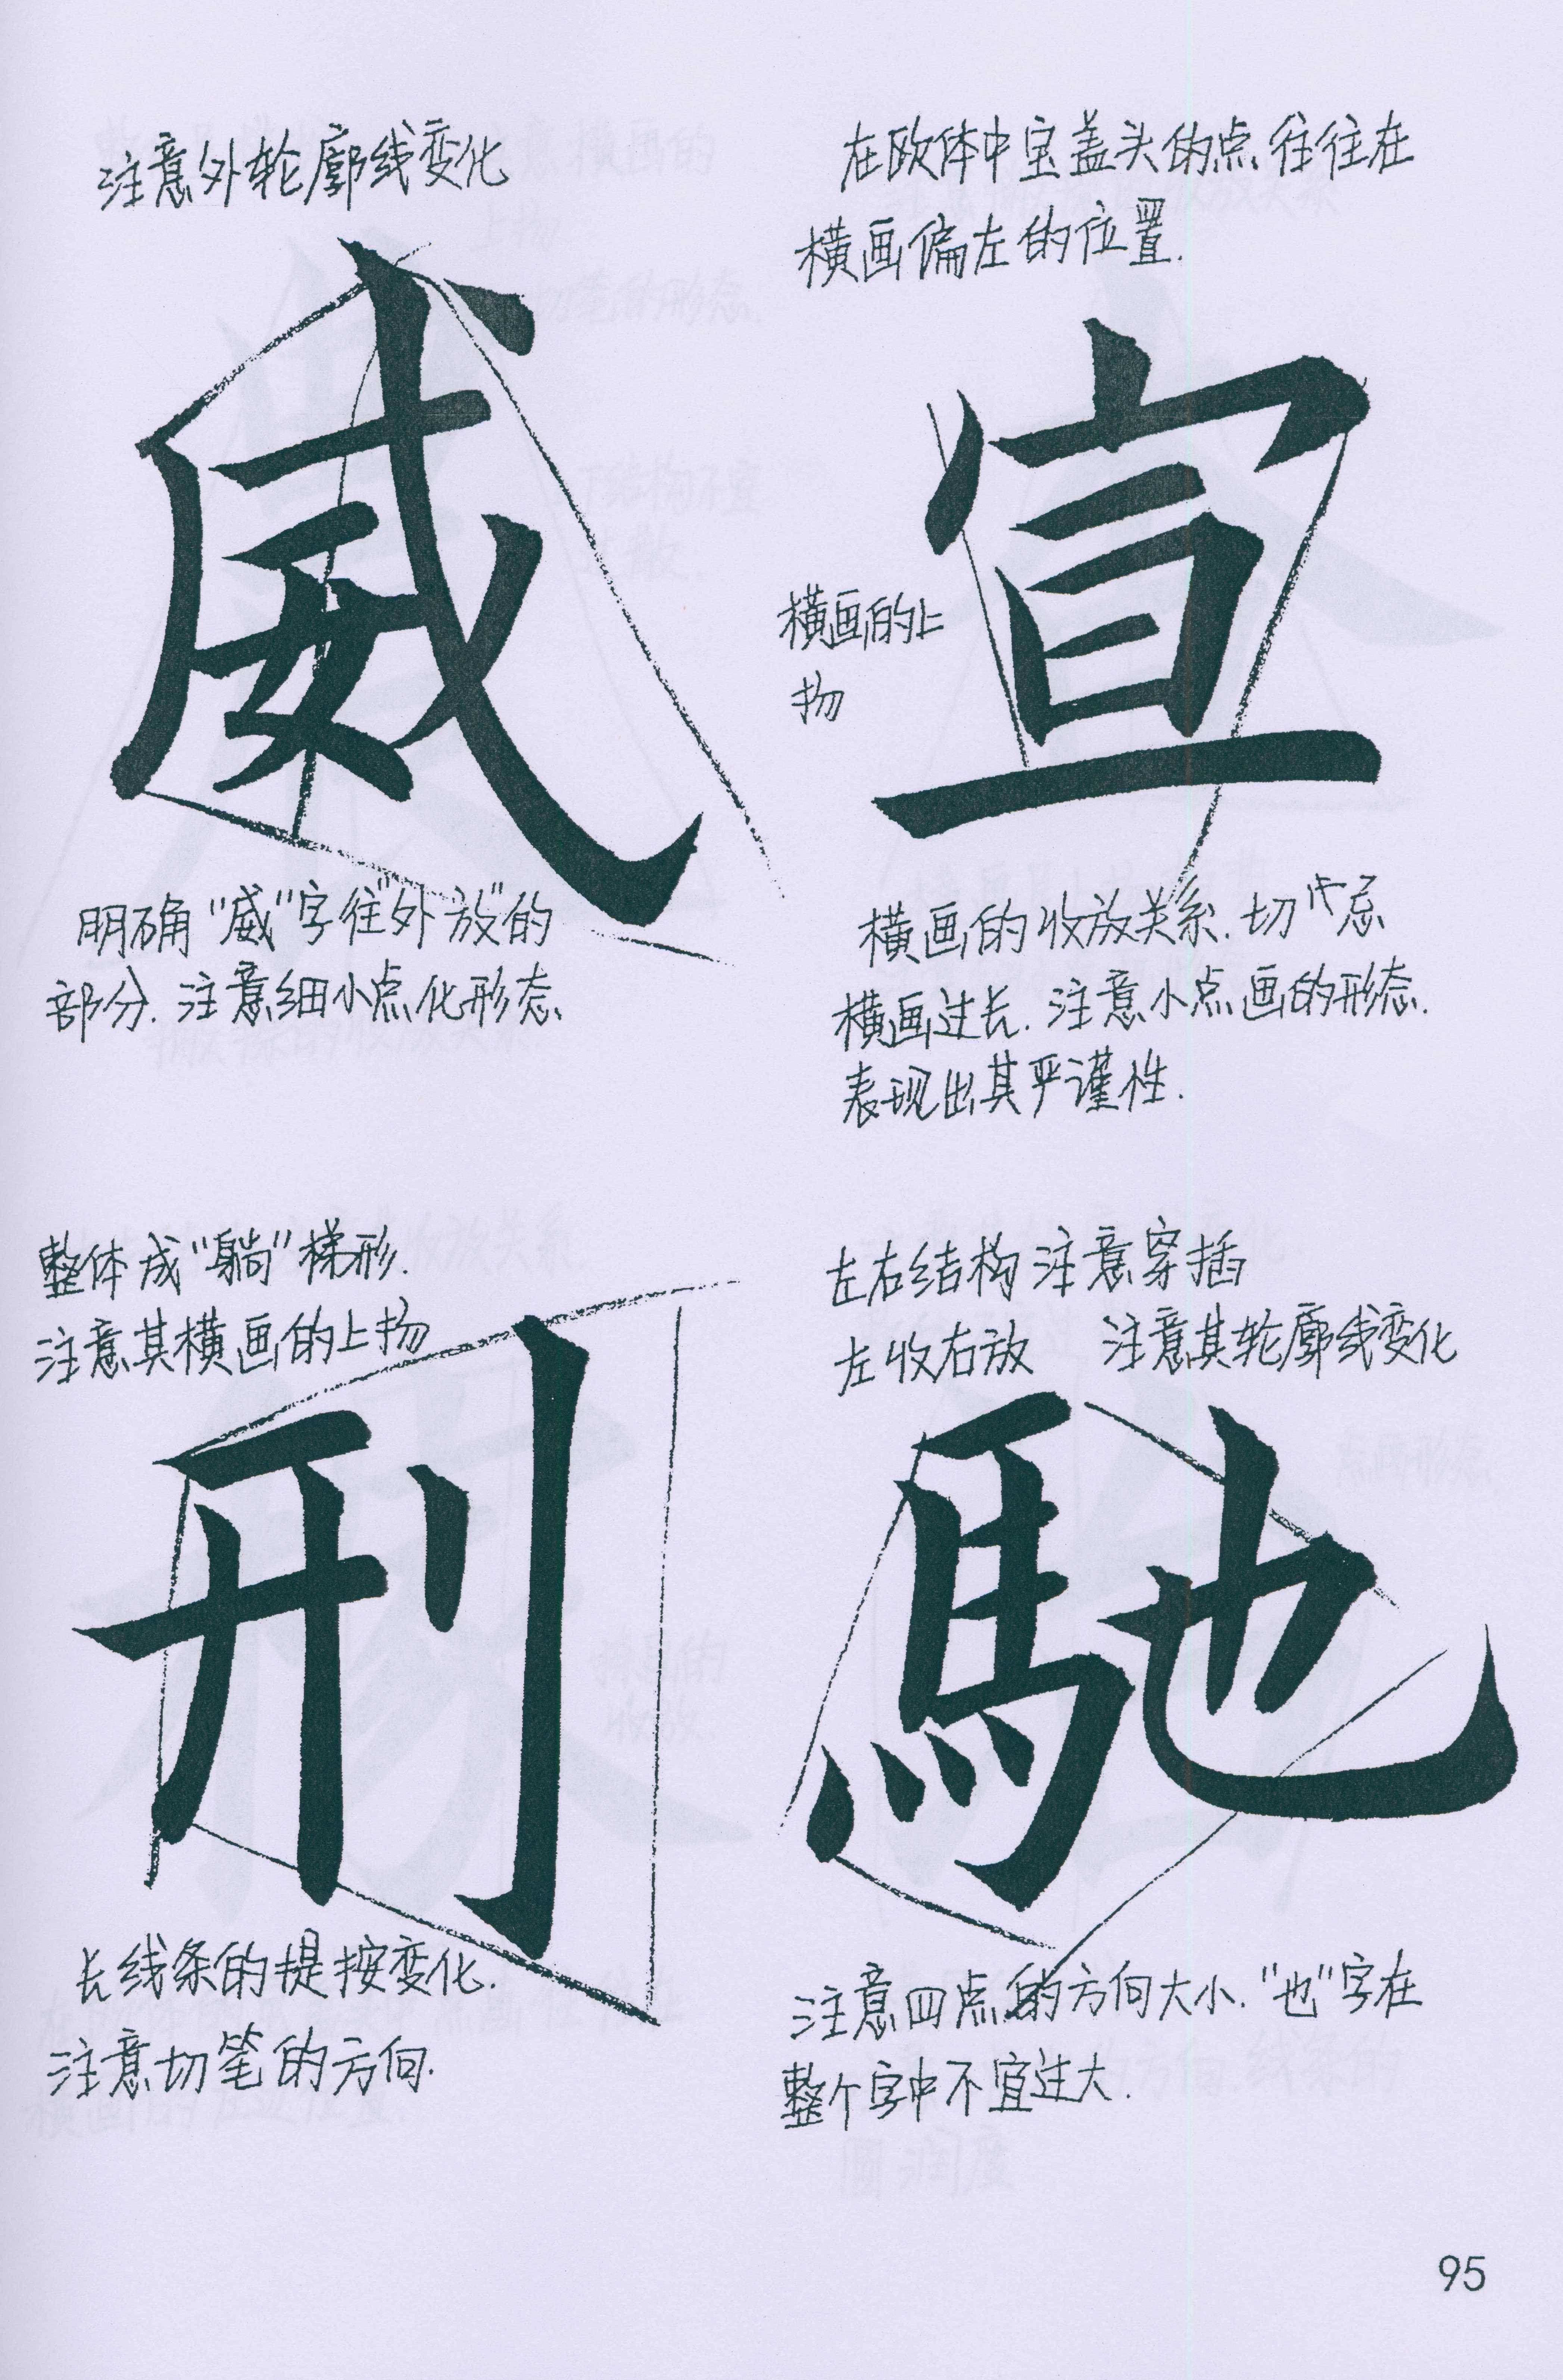 注意外轮廓线变化
威
明确“威”字往“外放”的
部分.注意细小点化形态.
在欧体中宝盖头的点往往在
横画偏左的位置.
宣
横画的上
扬
横画的收放关系.切忌
横画过长.注意小点画的形态.
表现出其严谨性.
整体成“躺”梯形.
注意其横画的上扬
刑
长线条的提按变化.
注意切笔的方向.
左右结构 注意穿插
左收右放 注意其轮廓线变化
馳
注意四点的方向大小.“也”字在
整个字中不宜过大.
95